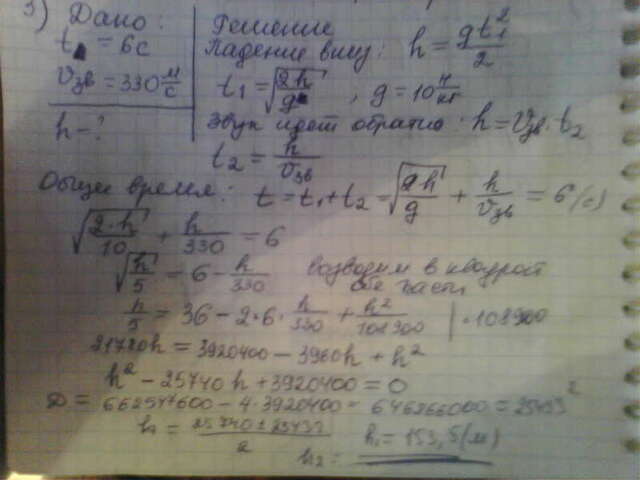 3) Дано:
t = 6с
Vзв = 330 м/с
h - ?
Решение
Падение вниз: h = gt₁²/2
t₁ = √(2h/g), g = 10 Н/кг
Звук идет обратно: h = Vзв · t₂
t₂ = h/Vзв
Общее время: t = t₁ + t₂ = √(2h/g) + h/Vзв = 6 (с)
√(2·h/10) + h/330 = 6
√(h/5) = 6 - h/330 возводим в квадрат
обе части
h/5 = 36 - 2·6· h/330 + h²/108900 | · 108900
21780h = 3920400 - 3960h + h²
h² - 25740h + 3920400 = 0
D = 662547600 - 4·3920400 = 646866000 = 25433²
= (25740 ± 25433)/2
h₁ = 153,5 (м)
h₂ =